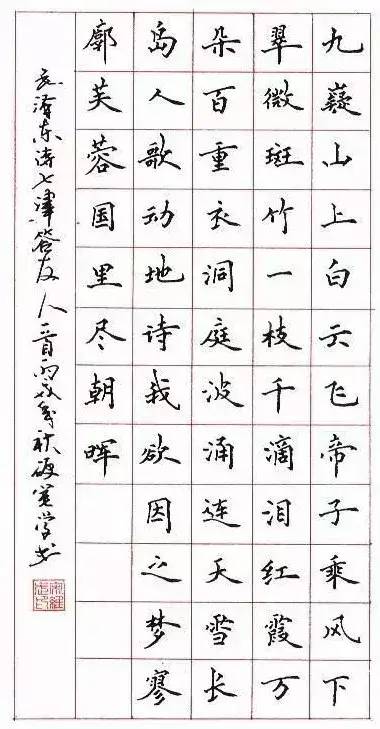 九嶷山上白云飞帝子乘风下
翠微斑竹一枝千滴泪红霞万
朵百重衣洞庭波涌连天雪长
岛人歌动地诗我欲因之梦寥
廓芙蓉国里尽朝晖
毛泽东诗七律答友人一首丙戌年秋